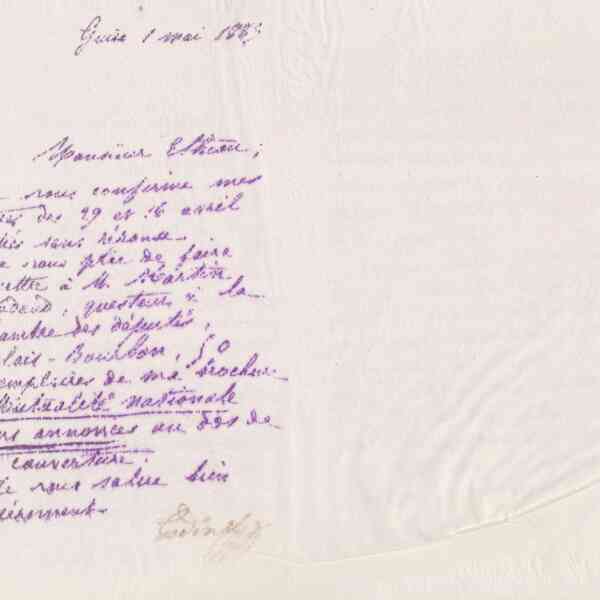 Guise 1 mai 188
Monsieur
vous confirme mes
des 29 et 16 avril
sans réponse.
vous prie de faire
à M. Martin
Nadaud, questeur à la
ambre des députés,
lais-Bourbon, 50
emplaires de ma brochure
Mutualité nationale
ns annonces au dos de
couverture.
Je vous salue bien
Godin